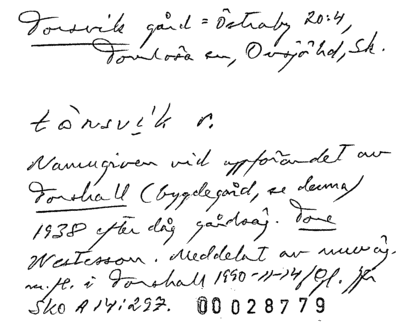 Torsvik gård = Östraby 20:4,
Torrlösa sn, Onsjö hd, Sk.
tån̩svík r.
Namngiven vid uppförandet av
Torshall (bygdegård, se denna)
1938 efter dåv gårdsäg. Tore
Westesson. Meddelat av nuv äg.
m.fl. i Torshall 1990-11-14/Gl. Jfr
Sko A 14:297. 00028779